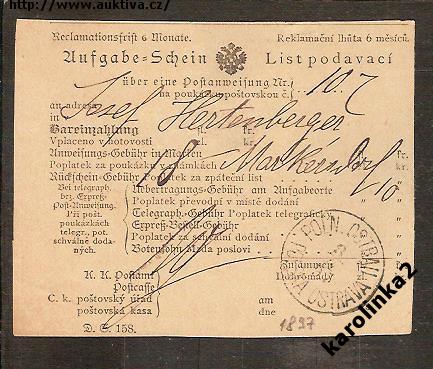 http://www.auktiva.cz/
Reclamationsfrist 6 Monate. Reklamační lhůta 6 měsíců.
Aufgabe-Schein List podavací
über eine Postanweisung Nr.
na poukázku poštovskou č. 107
an adresu Josef Hertenberger
in
Bareinzahlung fl. kr.
Vplaceno v hotovosti zl. kr.
Anweisungs-Gebühr in Marken
Poplatek za poukázku v známkách 10 Markersdorf fr. kr.
Rückschein-Gebühr Poplatek za zpáteční list " 10 "
Bei telegraph. bez. Expreß-Post-Anweisung.
Při pošt. poukázkách telegr., pot. schválně dodaných.
Uebertragungs-Gebühr am Aufgabeorte
Poplatek převodní v místě dodání
Telegraph-Gebühr Poplatek telegrafický
Expreß-Bestell-Gebühr
Poplatek za schválné dodání
Botenlohn Mzda poslovi
K. K. Postamt
Postcasse
Zusammen
Dohromady
C. k. poštovský úřad
poštovská kasa
am
dne
D. S. 158.
POLN. OSTRAU
OSTRAVA
1897
karolinka2